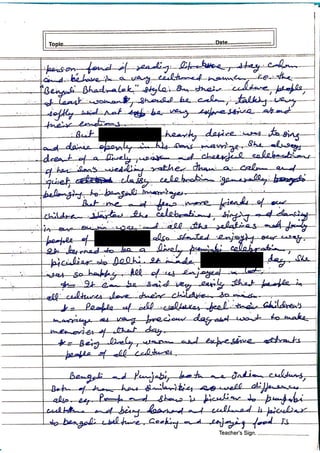 Topic Date
person fond of reading literature, stay calm
and behave in a very cultured manner, i.e. the
"Bengali Bhadralok" style. In their culture, people,
at least women, should be calm, talking very
softly and not be very expressive about
their emotions.
But hearty desire was to sing
and dance openly in his sons marriage. She always
dreamt of a lively, warm and cheerful celebrations
of her sons wedding rather than a calm and
quiet, classy celebration generally,
belonging to bengali marriages.
But me and few more friends of our
children started the celebrations, singing and dancing
in our own way and all the relatives and family
people of also started enjoying our way.
It turned to be a lively punjabi celebration
piculier to Delhi. It made day, She
was so happy. All of us enjoyed a lot.
It can be said very easily that people in
all cultures love their children so much.
People of all cultures feel their children's
marriage as very precious day and want to make
memories of that day.
Being lively, warm and expressive attracts
people of all cultures.
Bengali and Punjabi, both are Indian cultures,
Both of them have similarities as well differences
also. eg. Pomp and show is piculier to punjabi
culture and being learned and cultured is piculier
to bengali culture. Cooking and enjoying food is
Teacher's Sign